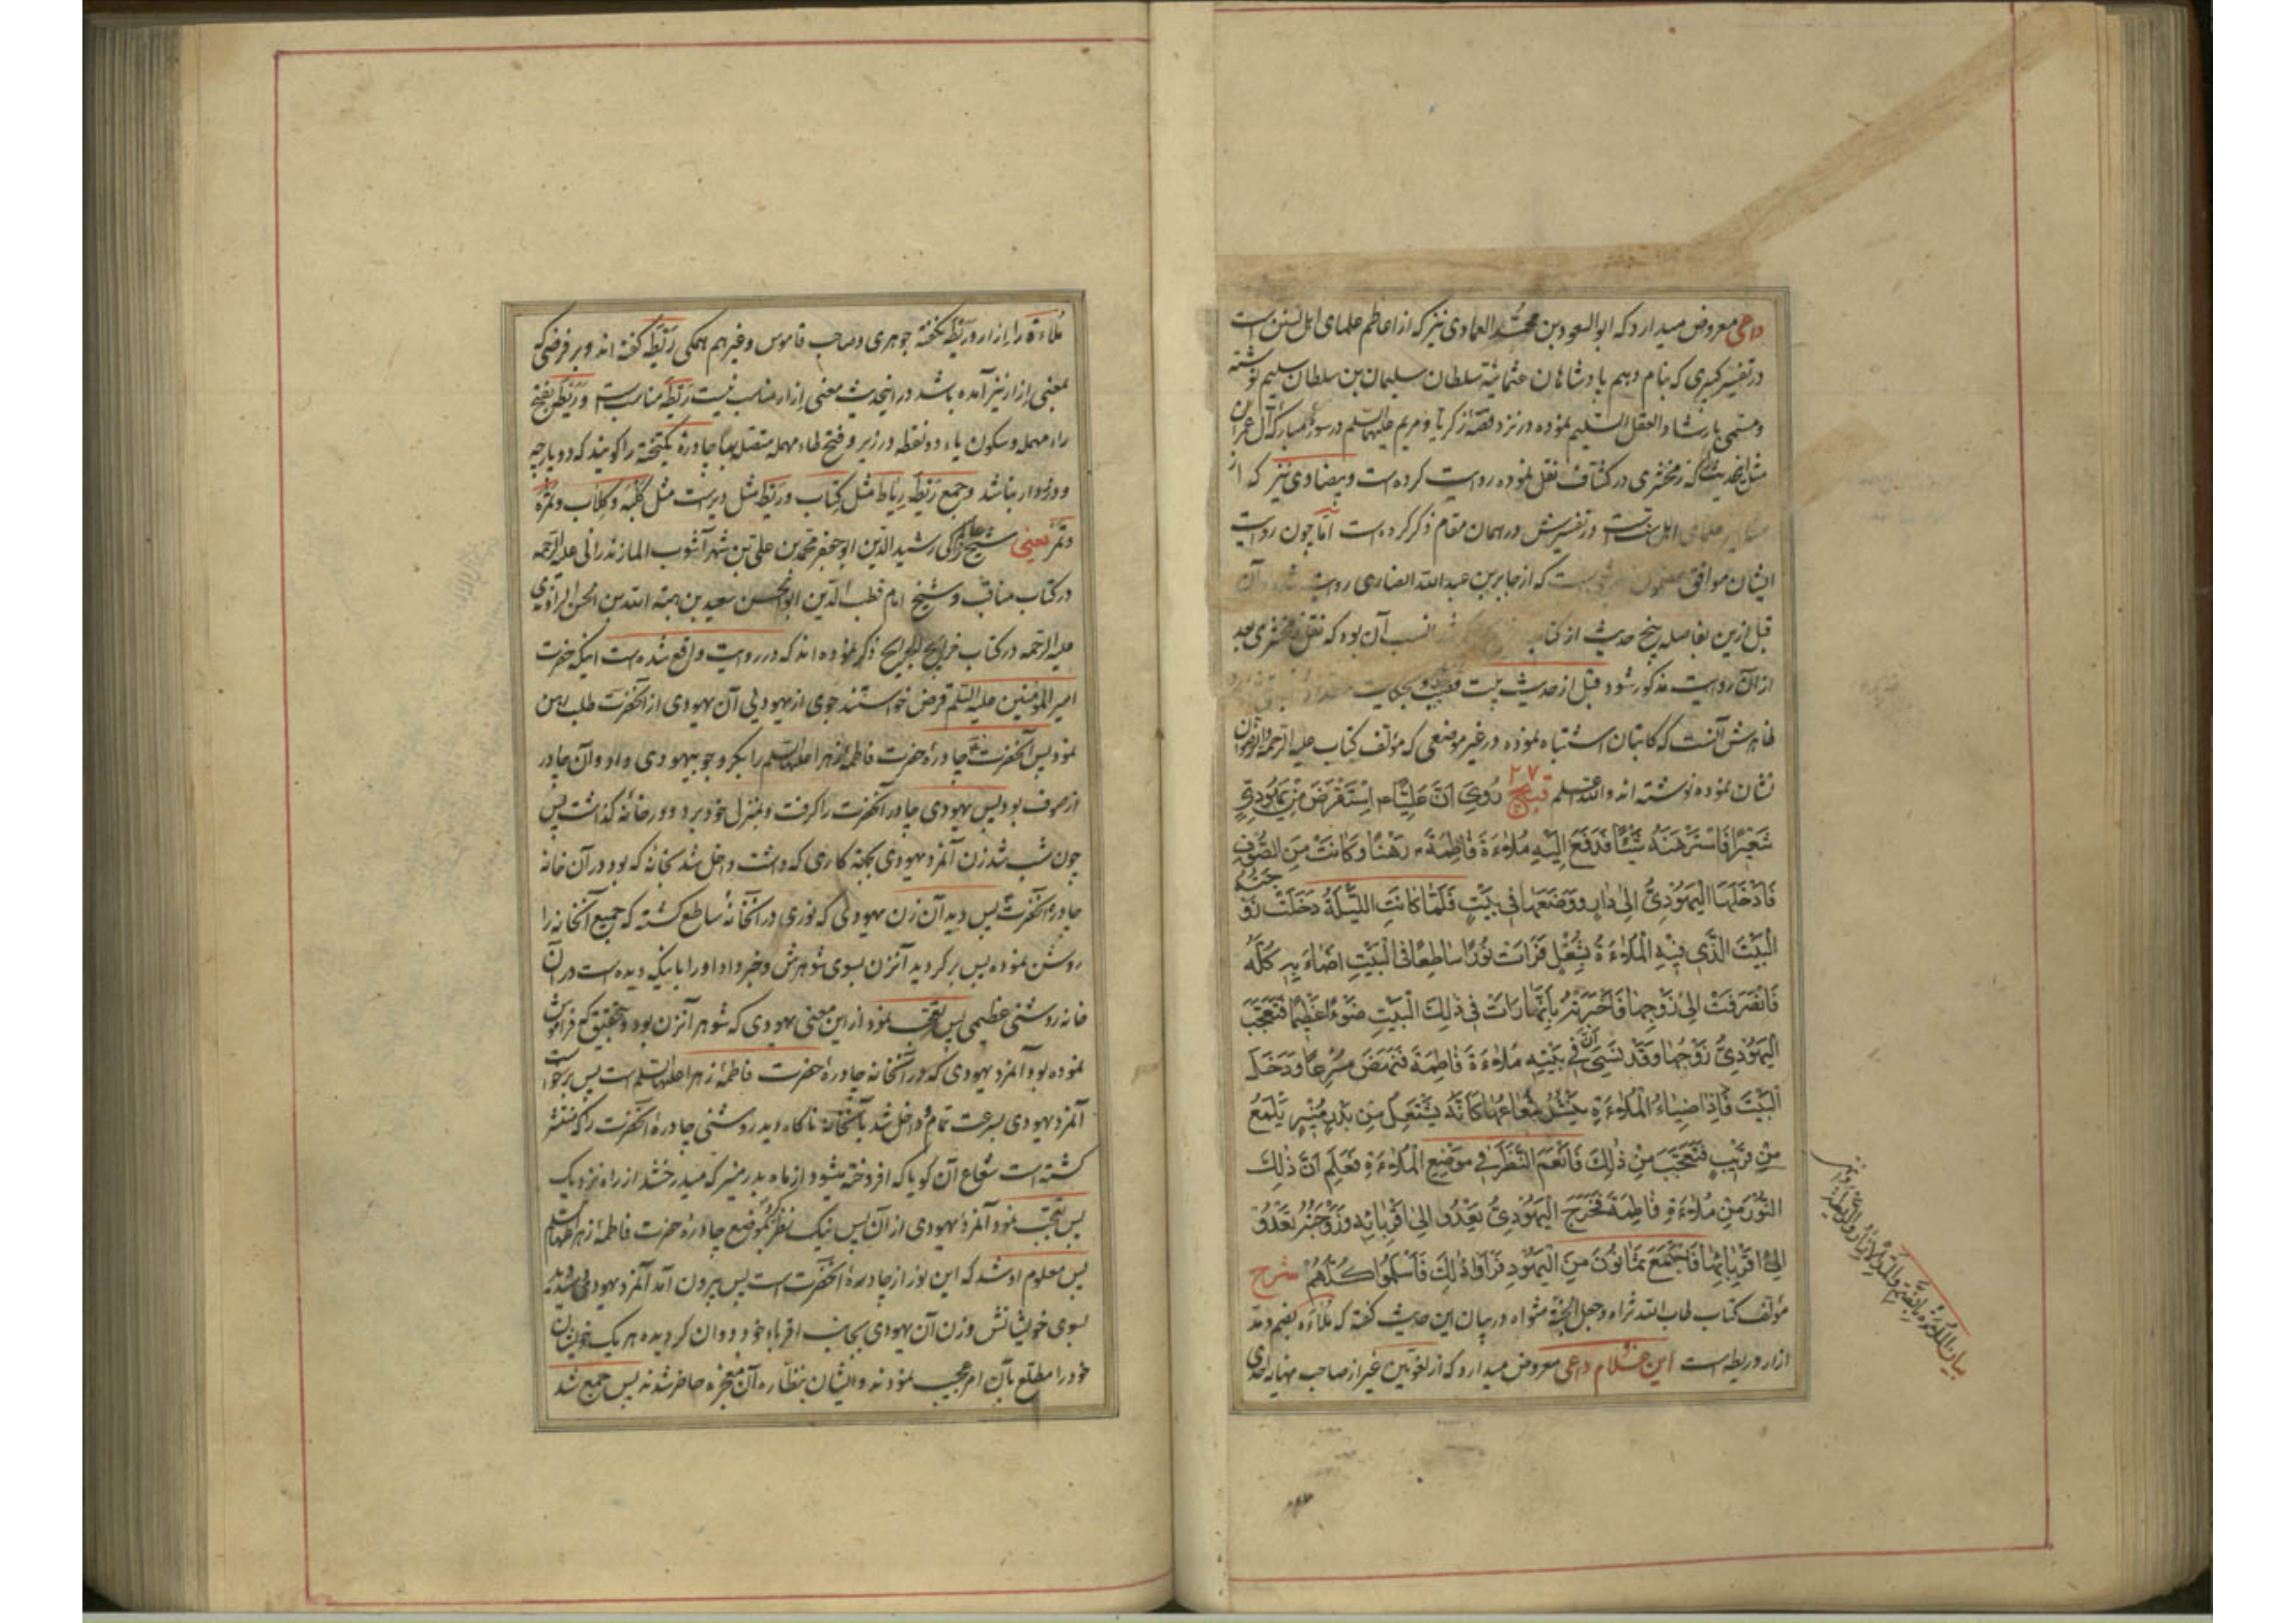 داعی معروض میدارد که ابوالسعود بن محمّد العمادی نیز که از اعاظم علمای اهل تسنن است
در تفسیر کبیری که بنام دهم پادشاهان عثمانیّه سلطان سلیمان بن سلطان سلیم نوشته
و مسمّی بارشاد العقل السّلیم نموده در نزد قصّهٔ زکریّا و مریم علیهما السّلم در سورهٔ مبارکهٔ آل عمران
مثل اینحدیث که زمخشری در کشّاف نقل نموده روایت کرده است و بیضاوی نیز که از
علمای اهل سنّت است در تفسیرش در همان مقام ذکر کرده است امّا چون روایت
ایشان موافق که از جابر بن عبد الله انصاری روایت آن
قبل ازین بفاصله پنج حدیث از کتاب انسب آن بود که نقل زمخشری بعد
از آن روایت مذکور شود قبل از حدیث بیست
ظاهرش آنست که کاتبان اشتباه نموده در غیر موضعی که مؤلف کتاب علیه الرحمة والرضوان
نشان نموده نوشته اند والله اعلم ۲۷ قیج رُوِیَ اَنَّ عَلِیًّا ع اِسْتَقْرَضَ مِنْ یَهُودِیٍّ
شَعیرًا فَاسْتَرْهَنَهُ شَیْئًا فَدَفَعَ اِلَیْهِ مُلاءَةَ فاطِمَةَ ع رَهْنًا وَکانَتْ مِنَ الصُّوفِ
فَاَدْخَلَهَا الْیَهُودِیُّ اِلی دارٍ وَوَضَعَها فی بَیْتٍ فَلَمّا کانَتِ اللَّیْلَةُ دَخَلَتْ زَوْجَتُهُ
الْبَیْتَ الَّذی فیهِ الْمُلاءَةُ بِشُغْلٍ فَرَاَتْ نُورًا ساطِعًا فِی الْبَیْتِ اَضاءَ بِهِ کُلُّهُ
فَانْصَرَفَتْ اِلی زَوْجِها فَاَخْبَرَتْهُ بِاَنَّها رَاَتْ فی ذلِکَ الْبَیْتِ ضَوْءًا عَظیمًا فَتَعَجَّبَ
الْیَهُودِیُّ زَوْجُها وَقَدْ نَسِیَ اَنَّ فی بَیْتِهِ مُلاءَةَ فاطِمَةَ فَنَهَضَ مُسْرِعًا وَدَخَلَ
الْبَیْتَ فَاِذا ضِیاءُ الْمُلاءَةِ یَنْشُرُ شُعاعَها کَاَنَّهُ یَشْتَعِلُ مِنْ بَدْرٍ مُنیرٍ یَلْمَعُ
مِنْ قَریبٍ فَتَعَجَّبَ مِنْ ذلِکَ فَاَنْعَمَ النَّظَرَ فی مَوْضِعِ الْمُلاءَةِ فَعَلِمَ اَنَّ ذلِکَ
النُّورَ مِنْ مُلاءَةِ فاطِمَةَ فَخَرَجَ الْیَهُودِیُّ یَعْدُو اِلی اَقْرِبائِهِ وَزَوْجَتُهُ تَعْدُو
اِلی اَقْرِبائِها فَاجْتَمَعَ ثَمانُونَ مِنَ الْیَهُودِ فَرَاَوْا ذلِکَ فَاَسْلَمُوا کُلُّهُمْ شرح
مؤلف کتاب طاب الله ثراه وجعل الجنّة مثواه در بیان این حدیث گفته که مُلاءَه بضم و مدّ
ازار و ریطه است این غلام داعی معروض میدارد که از لغویّین غیر از صاحب نهایه احدی
مُلاءَة را بازار و رَیْطَه نگفته جوهری و صاحب قاموس و غیرهم همگی رَیْطَه گفته اند و بر فرضی که
بمعنی ازار نیز آمده باشد در اینحدیث معنی ازار مناسب نیست رَیْطَه مناسبست و رَیْطَه بفتح
راء مهمله و سکون یاء دو نقطه در زیر و فتح طاء مهمله متصل بها چادرهٔ یکتخته را گویند که دو پارچه
و درزدار نباشد و جمع رَیْطَه رِیاط مثل کتاب و رَیْط مثل دیر است مثل کَلْبَه و کِلاب و تَمْرَه
و تَمْر یعنی شیخ رشید الدّین ابو جعفر محمّد بن علیّ بن شهر آشوب المازندرانی علیه الرّحمه
در کتاب مناقب و شیخ امام قطب الدّین ابو الحسن سعید بن هبة الله بن الحسن الراوندی
علیه الرّحمه در کتاب خرایج الجرایح ذکر نموده اند که در روایت واقع شده است اینکه حضرت
امیر المؤمنین علیه السّلم قرض خواستند جوی از یهودیی آن یهودی از آنحضرت طلب رهن
نمود پس آنحضرت چادرهٔ حضرت فاطمهٔ زهرا علیها السّلم را بگرو جو بیهودی داد و آن چادر
از صوف بود پس یهودی چادر آنحضرت را گرفت و بمنزل خود برد و در خانه گذاشت پس
چون شب شد زن آنمرد یهودی بجهة کاری که داشت داخل شد بخانه که بود در آن خانه
چادرهٔ آنحضرت پس دید آن زن یهودی که نوری در آنخانه ساطع گشته که جمیع آنخانه را
روشن نموده پس برگردید آنزن بسوی شوهرش و خبر داد او را باینکه دیده است در آن
خانه روشنی عظیمی پس تعجّب نمود از این معنی یهودی که شوهر آنزن بود و بتحقیق که فراموش
نموده بود آنمرد یهودی که در آنخانه چادرهٔ حضرت فاطمهٔ زهرا علیها السّلم است پس برخواست
آنمرد یهودی بسرعت تمام و داخل شد بآنخانه ناگاه دید روشنی چادرهٔ آنحضرت را که منتشر
گشته است شعاع آن گویا که افروخته میشود از ماه بدر منیر که میدرخشد از راه نزدیک
پس تعجّب نمود آنمرد یهودی از آن پس نیک نظر کرد بموضع چادرهٔ حضرت فاطمهٔ زهرا علیها السّلم
پس معلوم او شد که این نور از چادرهٔ آنحضرت است پس بیرون آمد آنمرد یهودی
بسوی خویشانش و زن آن یهودی بجانب اقرباء خود دوان گردیده هر یک خویشان
خود را مطلع بآن امر عجیب نمودند و ایشان بنظّاره آن معجزه حاضر شدند پس جمع شد